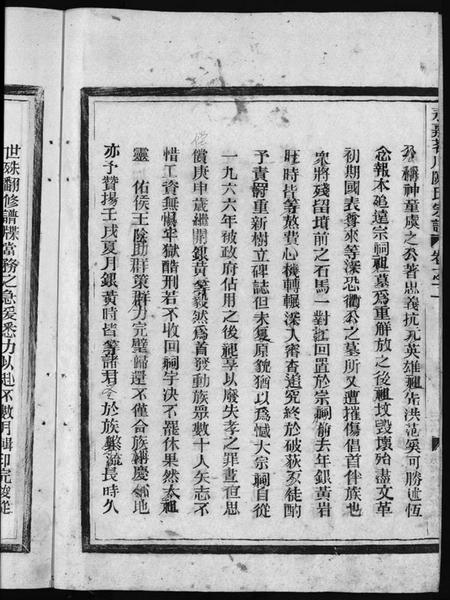 永嘉芙川陳氏宗譜 卷之一
公稱神童虞之公著忠義抗元英雄祖先洪范奚可勝述恆
念報本追遠宗祠祖墓為重解放之後祖坟毀壞殆盡文革
初期國表尊來等深恐衝公之墓所又遭摧傷倡首伴族也
眾將殘留墳前之石馬一對扛回置於宗祠前去年銀黃岩
旺時皆等煞費心機轉輾深入審查追究終於破荻歹徒酌
予責罸重新樹立碑誌但未復原貌猶以為憾大宗祠自從
一九六六年被政府佔用之後祖享以廢失孝之罪昼但思
償庚申歲繼開銀黃等毅然為首發動族眾數十人矢志不
惜工資無惧牢獄酷刑若不收回祠宇决不罷休果然泰祖
靈 佑侯王陰助群策群力完璧歸還不僅合族稱慶鄰地
亦予贊揚壬戌夏月銀黃時皆等諸君 於族繁流長時久
世殊翻修譜牒當務之急爰悉力以赴不數月輯印完竣從